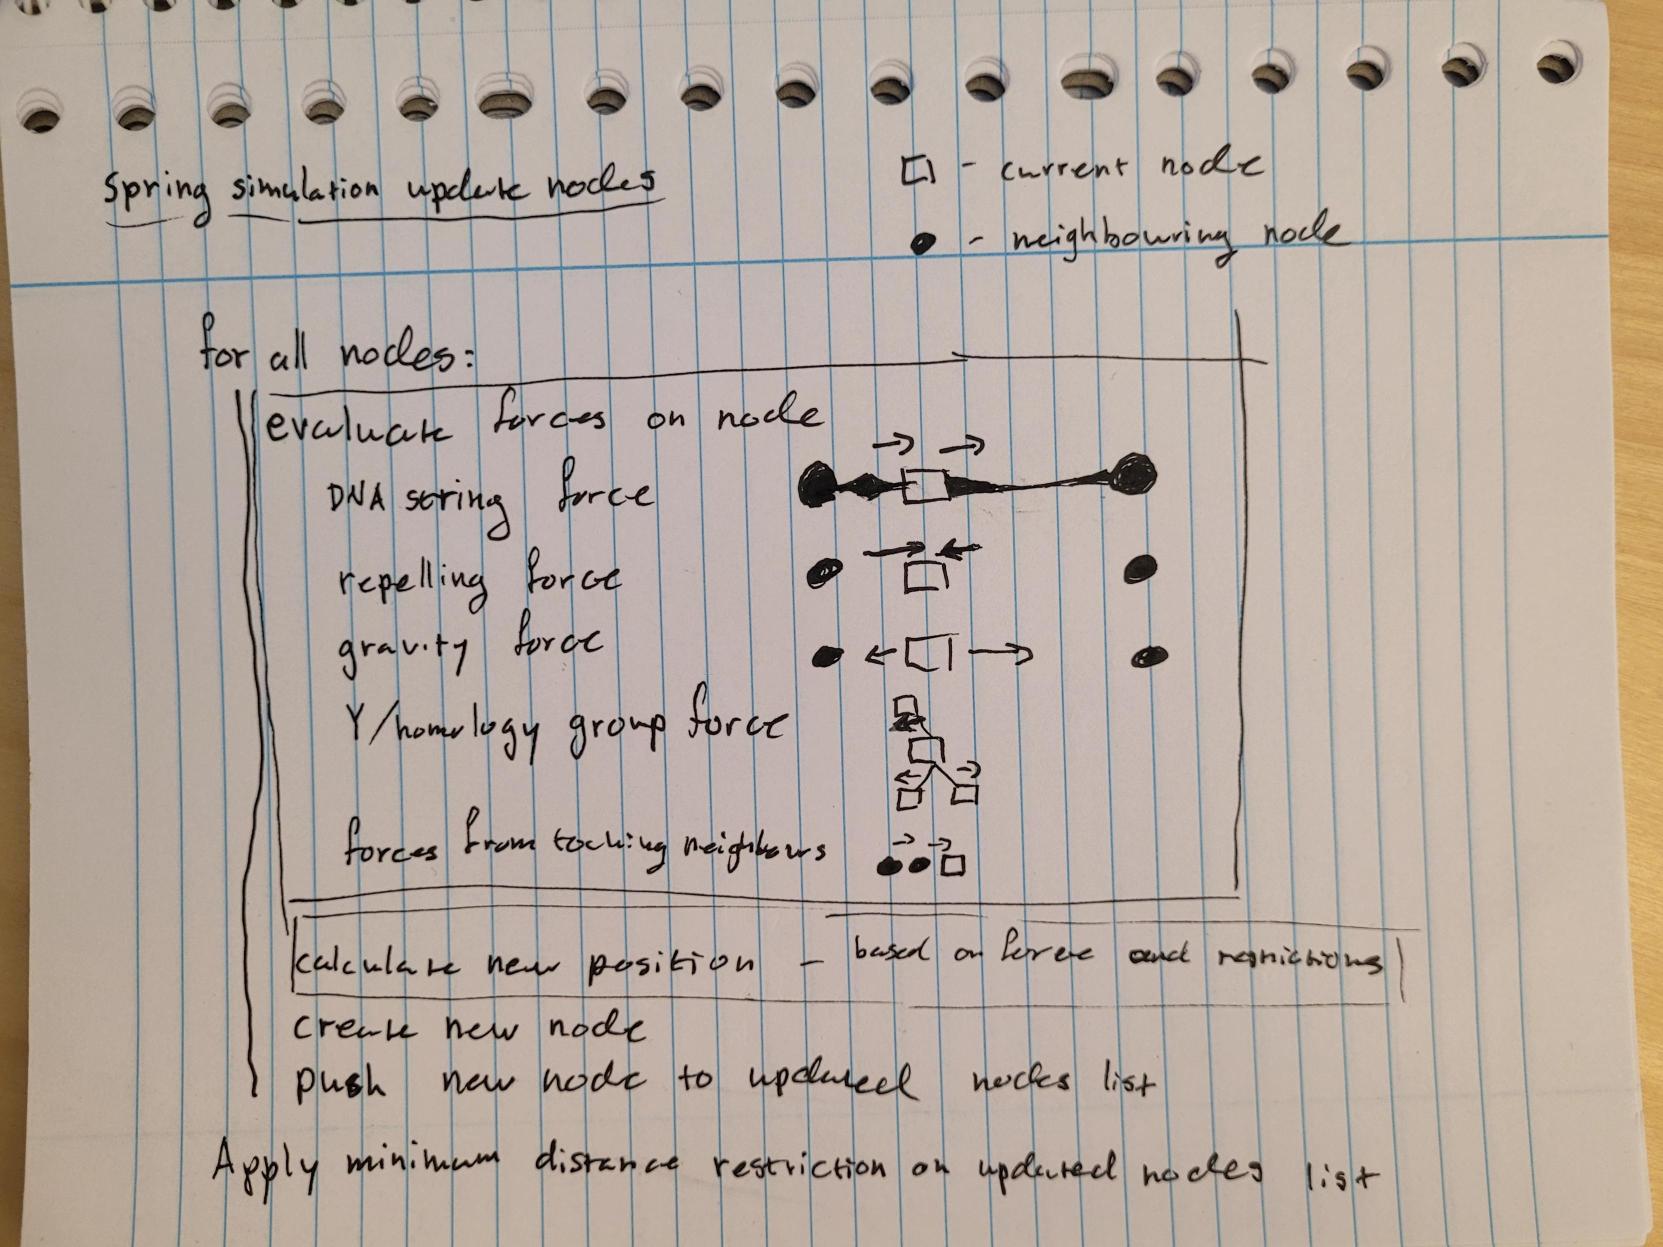 spring simulation update nodes
□ - current node
● - neighbouring node
for all nodes:
evaluate forces on node
DNA string force
repelling force
gravity force
Y/homology group force
forces from toching neighbours
calculate new position - based on force and restrictions
create new node
push new node to updated nodes list
Apply minimum distance restriction on updated nodes list